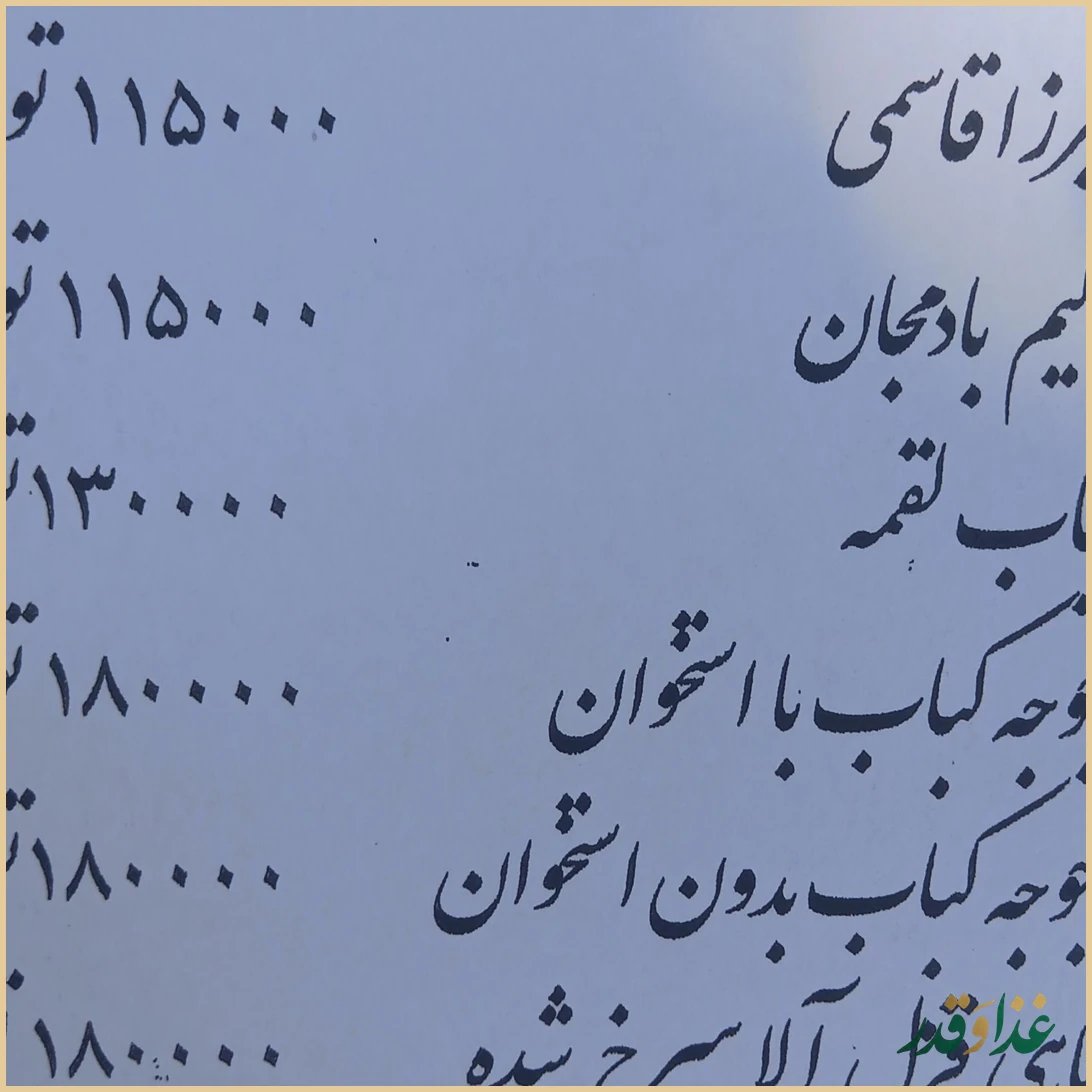 قاسمی ۱۱۵۰۰۰
بادمجان ۱۱۵۰۰۰
لقمه ۱۳۰۰۰۰
کباب با استخوان ۱۸۰۰۰۰
کباب بدون استخوان ۱۸۰۰۰۰
آلا سرخ شده ۱۸۰۰۰۰
غذا و قدر